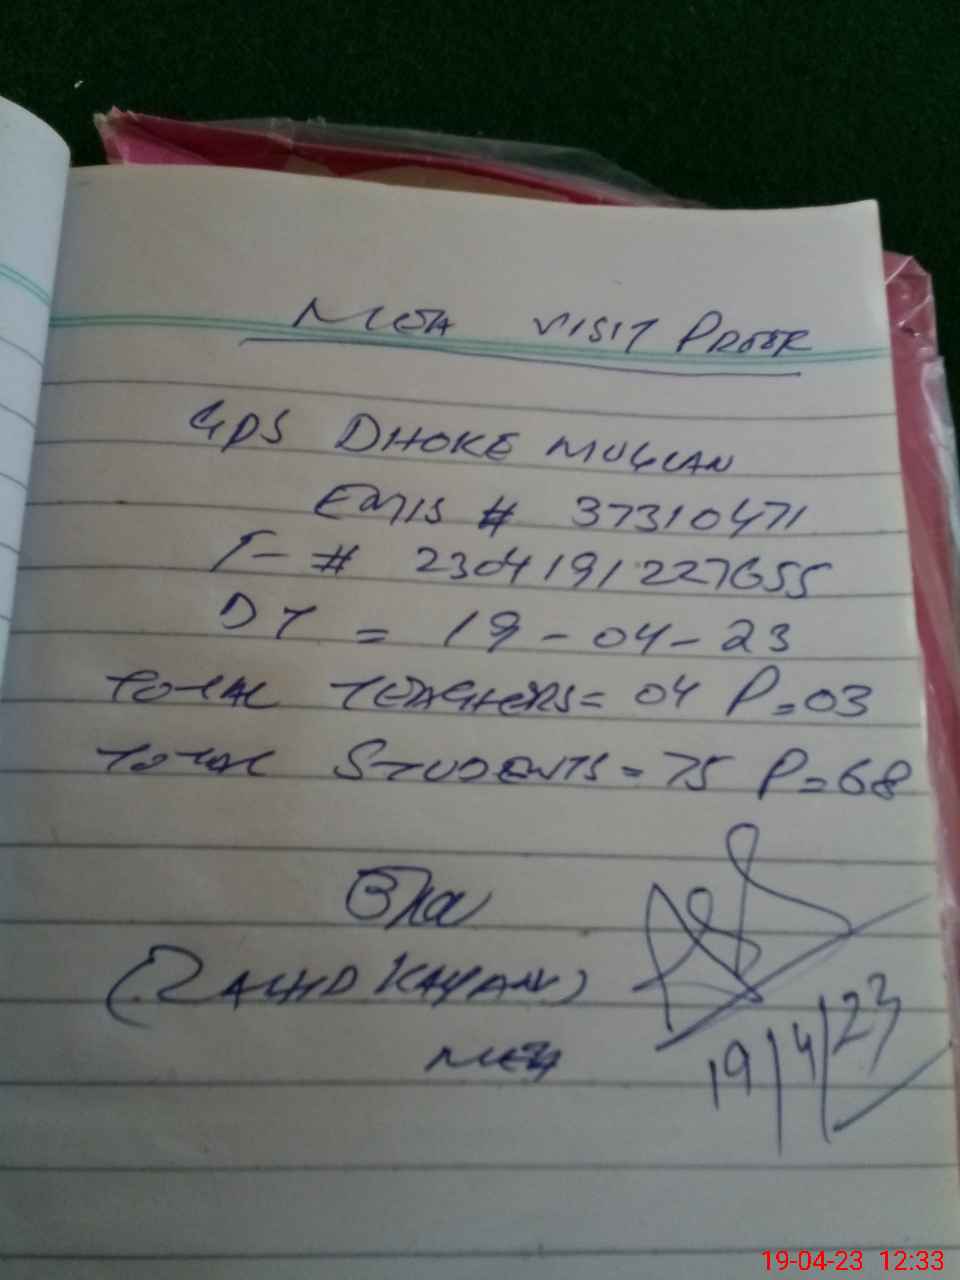 MEA VISIT PROOF
GPS DHOKE MUGLAN
EMIS # 37310471
T- # 2304191227655
DT = 19-04-23
TOTAL TEACHERS = 04 P=03
TOTAL STUDENTS = 75 P=68
KAYANI)
MEA
19/4/23
19-04-23 12:33